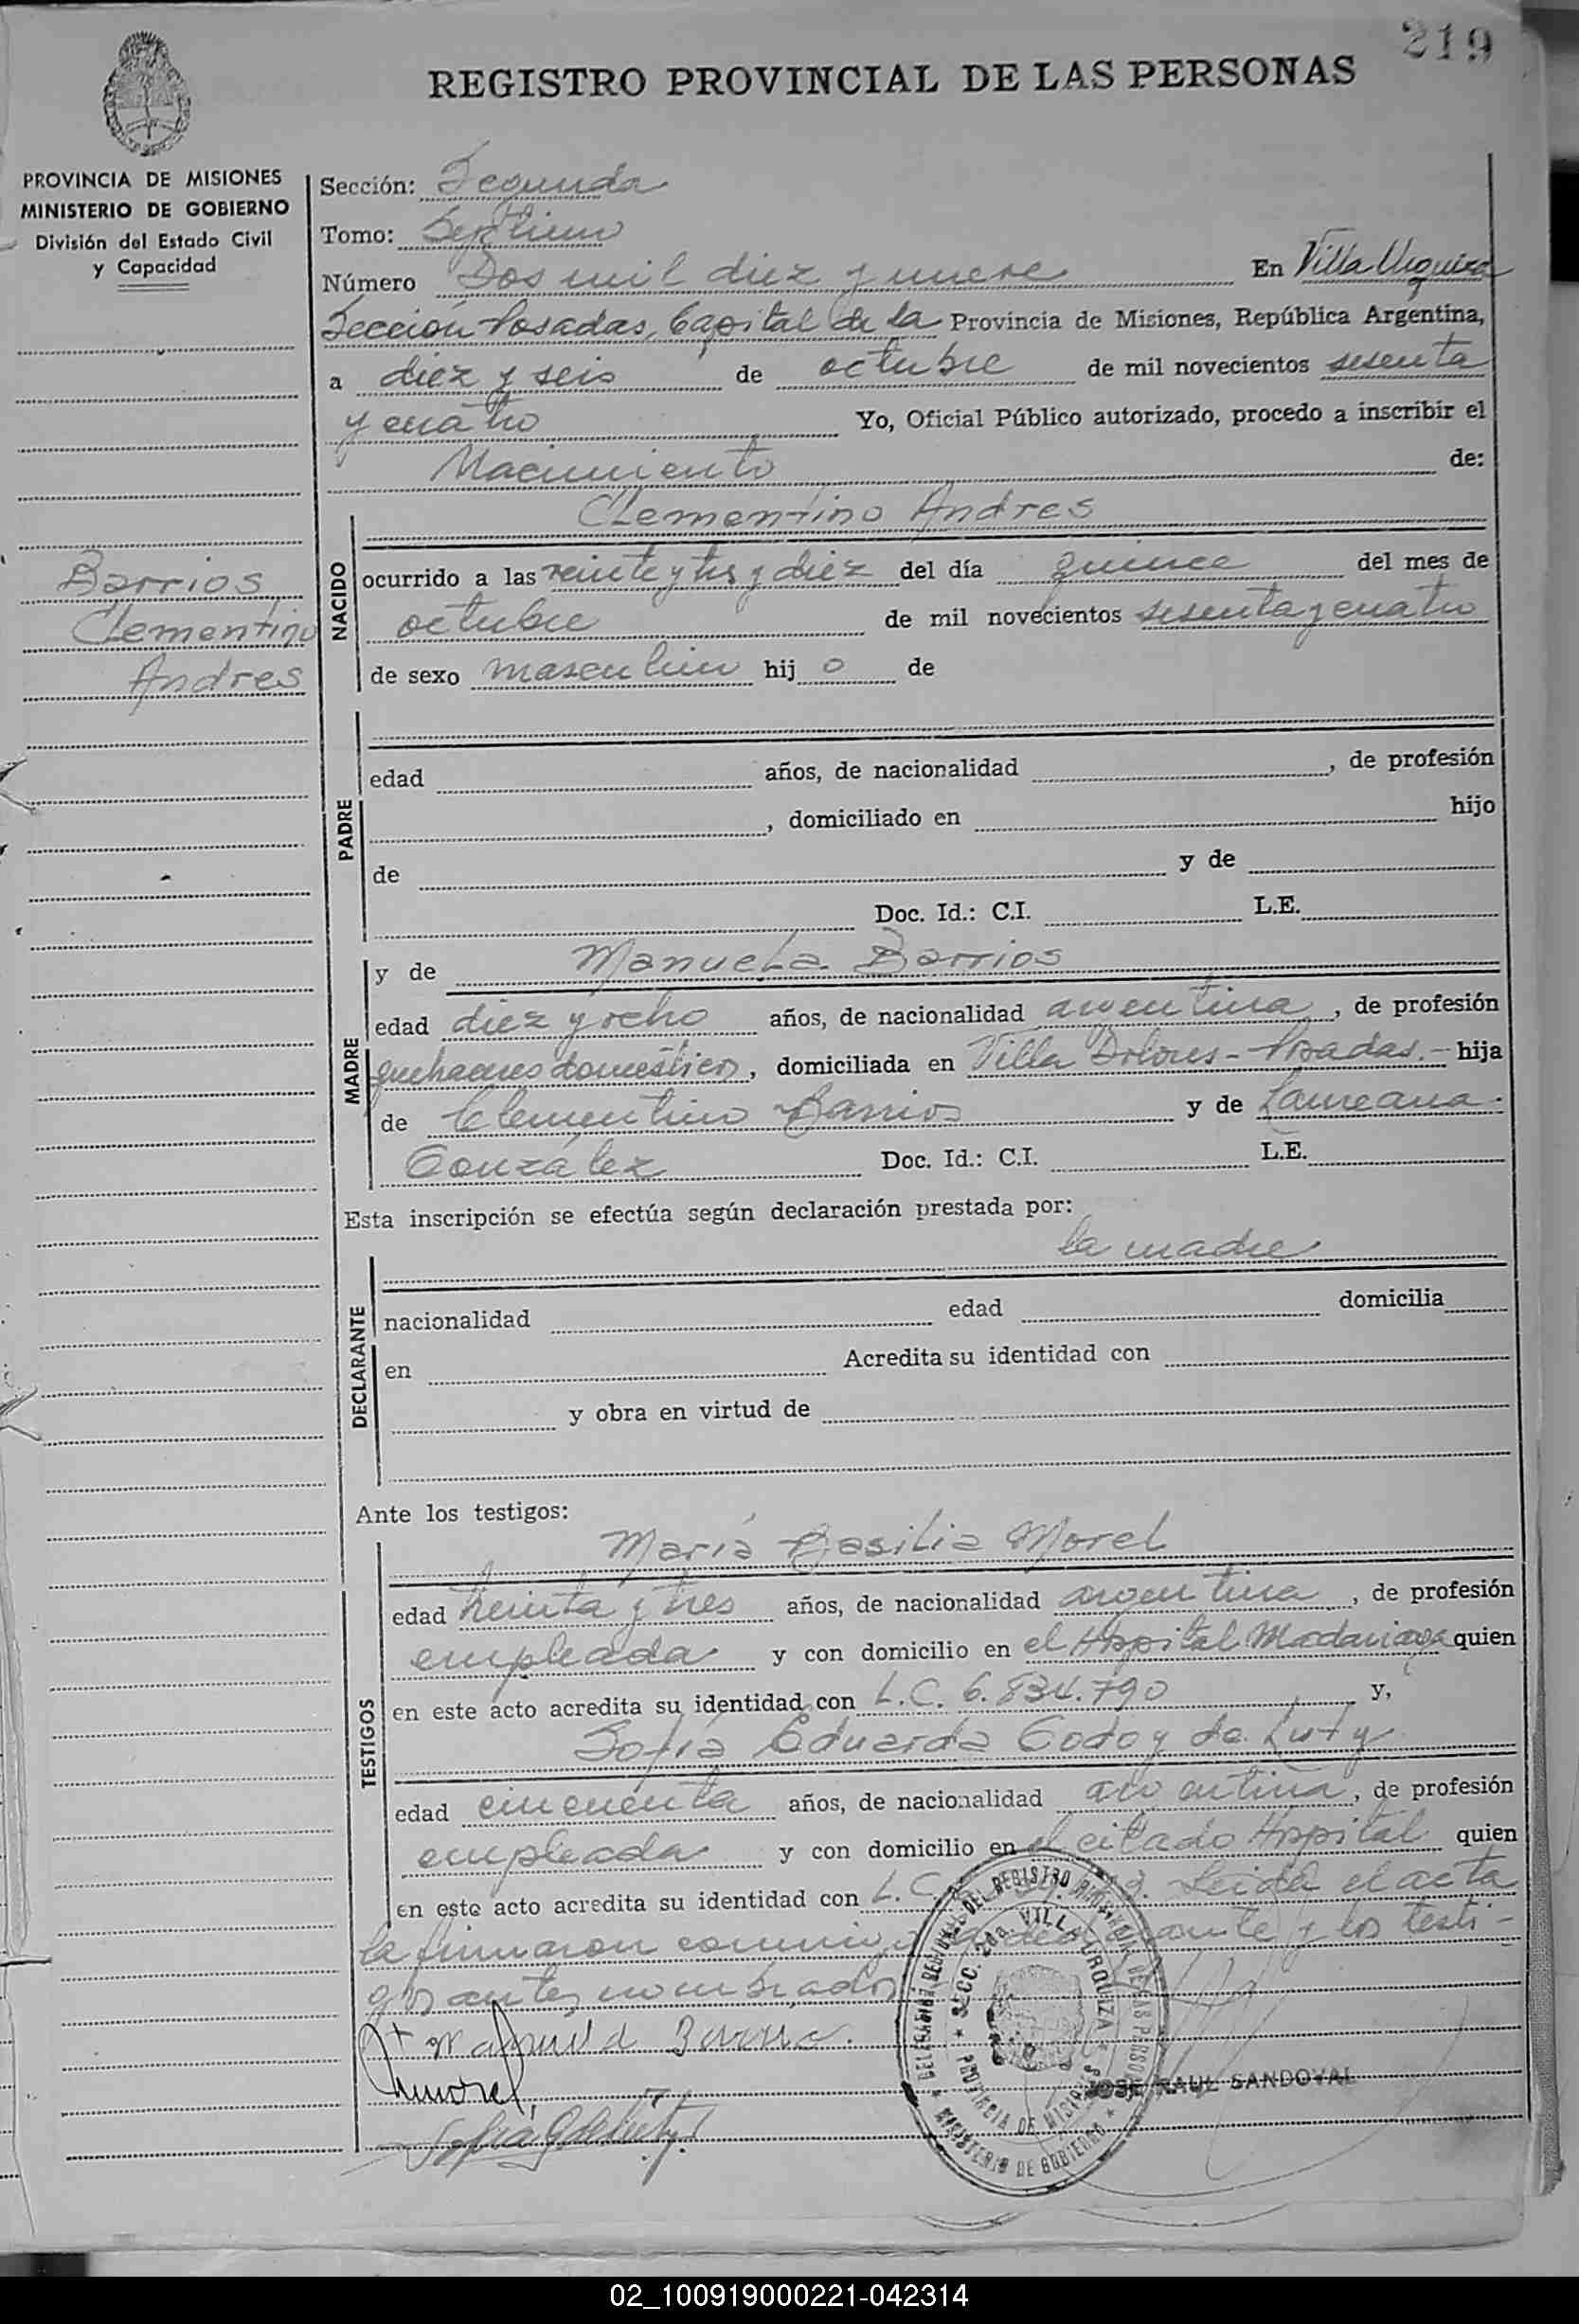 219
REGISTRO PROVINCIAL DE LAS PERSONAS
PROVINCIA DE MISIONES
MINISTERIO DE GOBIERNO
División del Estado Civil
y Capacidad
Sección: Segunda
Tomo: Septimo
Número Dos mil diez y nueve En Villa Urquiza
Sección Posadas, Capital de la Provincia de Misiones, República Argentina,
a diez y seis de octubre de mil novecientos sesenta
y cuatro Yo, Oficial Público autorizado, procedo a inscribir el
Nacimiento de:
Clementino Andres
Barrios
Clementino
Andres
NACIDO
ocurrido a las veinte y tres y diez del día quince del mes de
octubre de mil novecientos sesenta y cuatro
de sexo masculino hij o de
PADRE
edad años, de nacionalidad , de profesión
, domiciliado en hijo
de y de
Doc. Id.: C.I. L.E.
MADRE
y de Manuela Barrios
edad diez y ocho años, de nacionalidad argentina, de profesión
quehaceres domésticos, domiciliada en Villa Dolores - Posadas. - hija
de Clementino Barrios y de Laureana
González Doc. Id.: C.I. L.E.
Esta inscripción se efectúa según declaración prestada por:
la madre
DECLARANTE
nacionalidad edad domicilia
en Acredita su identidad con
y obra en virtud de
Ante los testigos:
TESTIGOS
María Basilia Morel
edad treinta y tres años, de nacionalidad argentina, de profesión
empleada y con domicilio en el Hospital Madariaga quien
en este acto acredita su identidad con L.C. 6.834.790 y,
Sofía Eduarda Godoy de Luty
edad cincuenta años, de nacionalidad argentina, de profesión
empleada y con domicilio en el citado Hospital quien
en este acto acredita su identidad con L.C. Leida el acta
la firmaron conmigo y los testi-
gos antes nombrados
SECC. 2da. VILLA URQUIZA
PROVINCIA DE MISIONES
MINISTERIO DE GOBIERNO
JOSE RAUL SANDOVAL
02_100919000221-042314